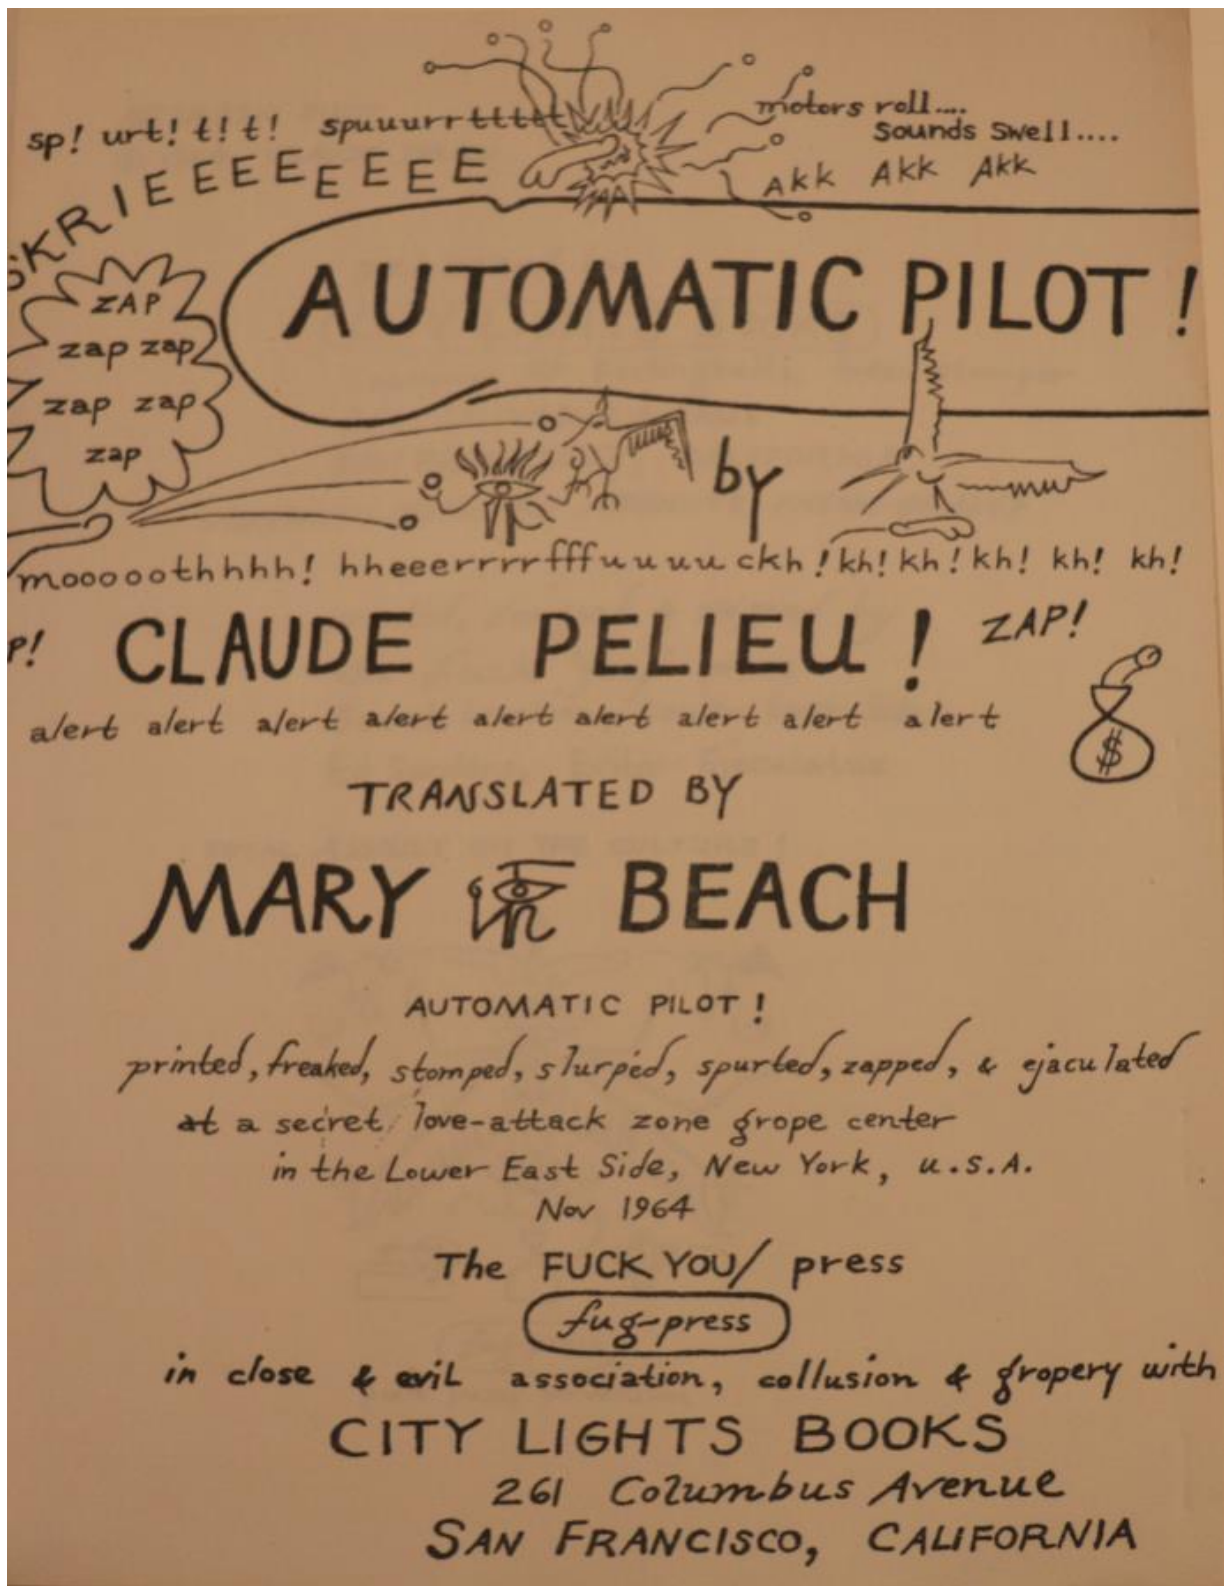 sp! urt! t! t! spuuurrttttt motors roll....
sounds swell....
SKRIEEEEEEEE AKK AKK AKK
AUTOMATIC PILOT!
ZAP
zap zap
zap zap
zap
by
mooooothhhh! hheeerrrrfffuuuuuckh! kh! kh! kh! kh! kh!
P! CLAUDE PELIEU! ZAP!
alert alert alert alert alert alert alert alert alert
$
TRANSLATED BY
MARY BEACH
AUTOMATIC PILOT!
printed, freaked, stomped, slurped, spurted, zapped, & ejaculated
at a secret love-attack zone grope center
in the Lower East Side, New York, U.S.A.
Nov 1964
The FUCK YOU/ press
fug-press
in close & evil association, collusion & gropery with
CITY LIGHTS BOOKS
261 Columbus Avenue
SAN FRANCISCO, CALIFORNIA